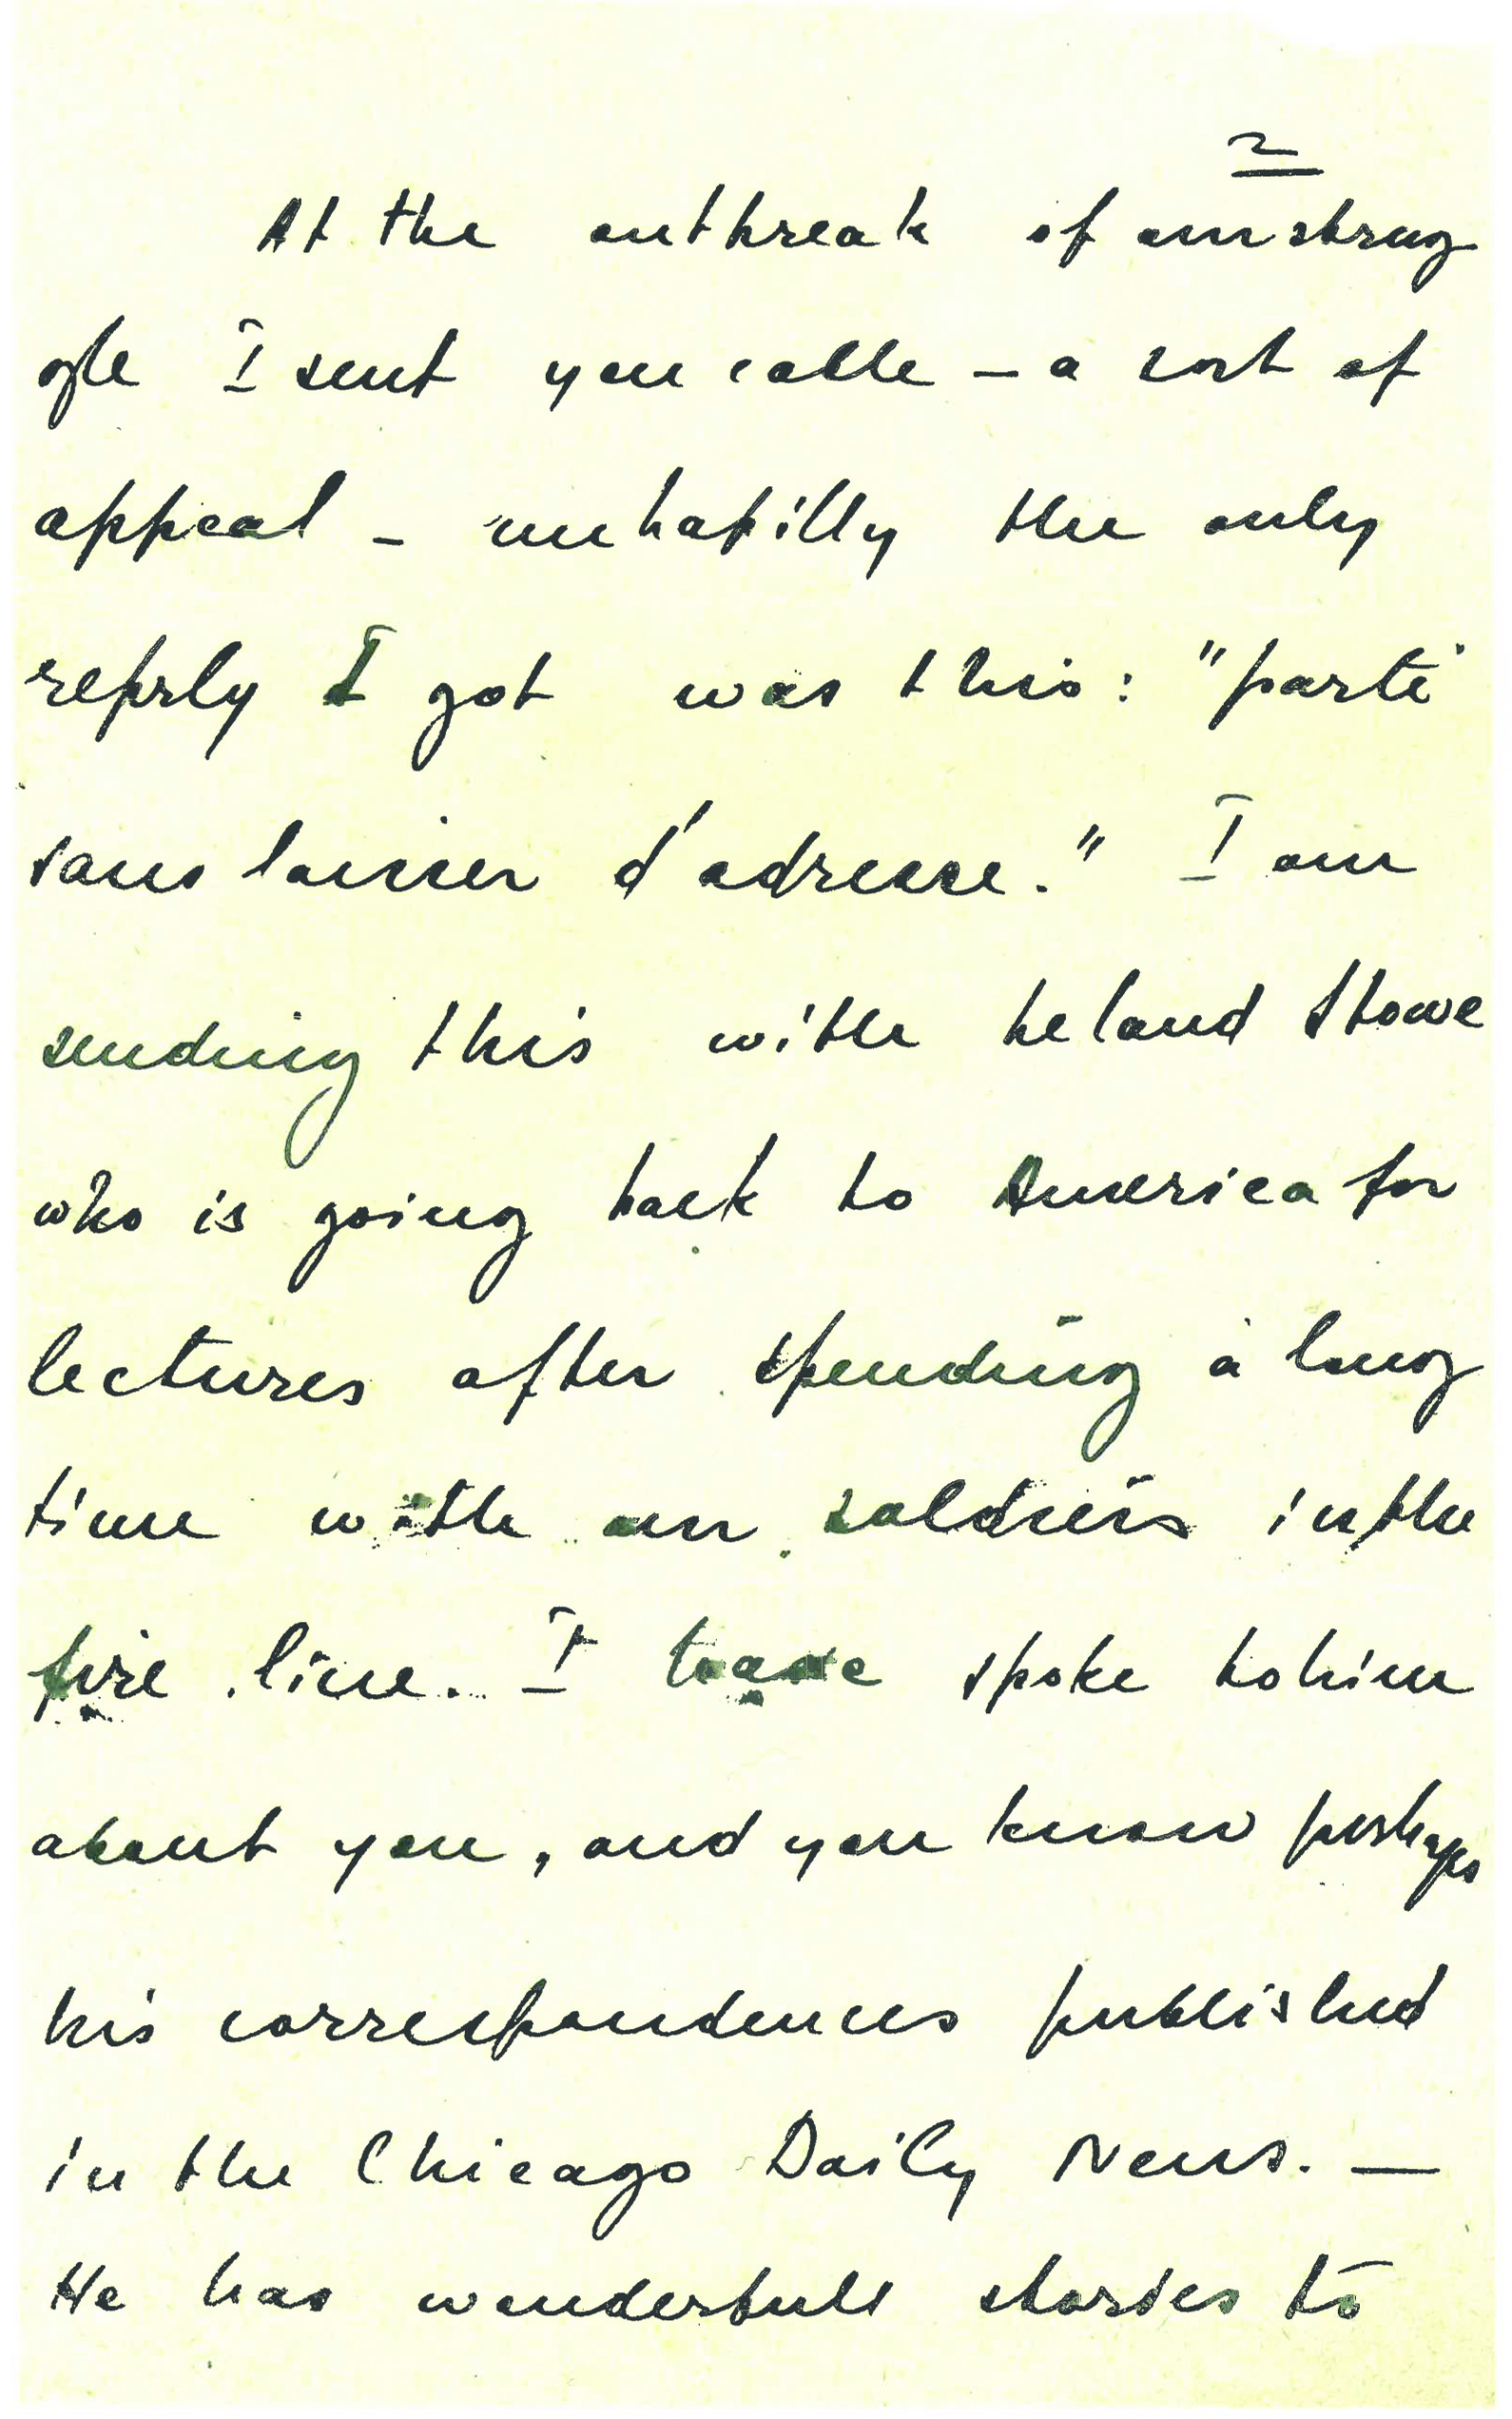 2
At the outbreak of our strug
gle I sent you cable – a sort of
appeal – unhapilly the only
reprly I got was this: "parti
sans laisser d'adresse." I am
sending this with Leland Stowe
who is going back to America for
lectures after spending a long
time with our soldiers in the
fire line. I have spoke to him
about you, and you know perhaps
his correspondences published
in the Chicago Daily News. —
He has wonderfull stories to